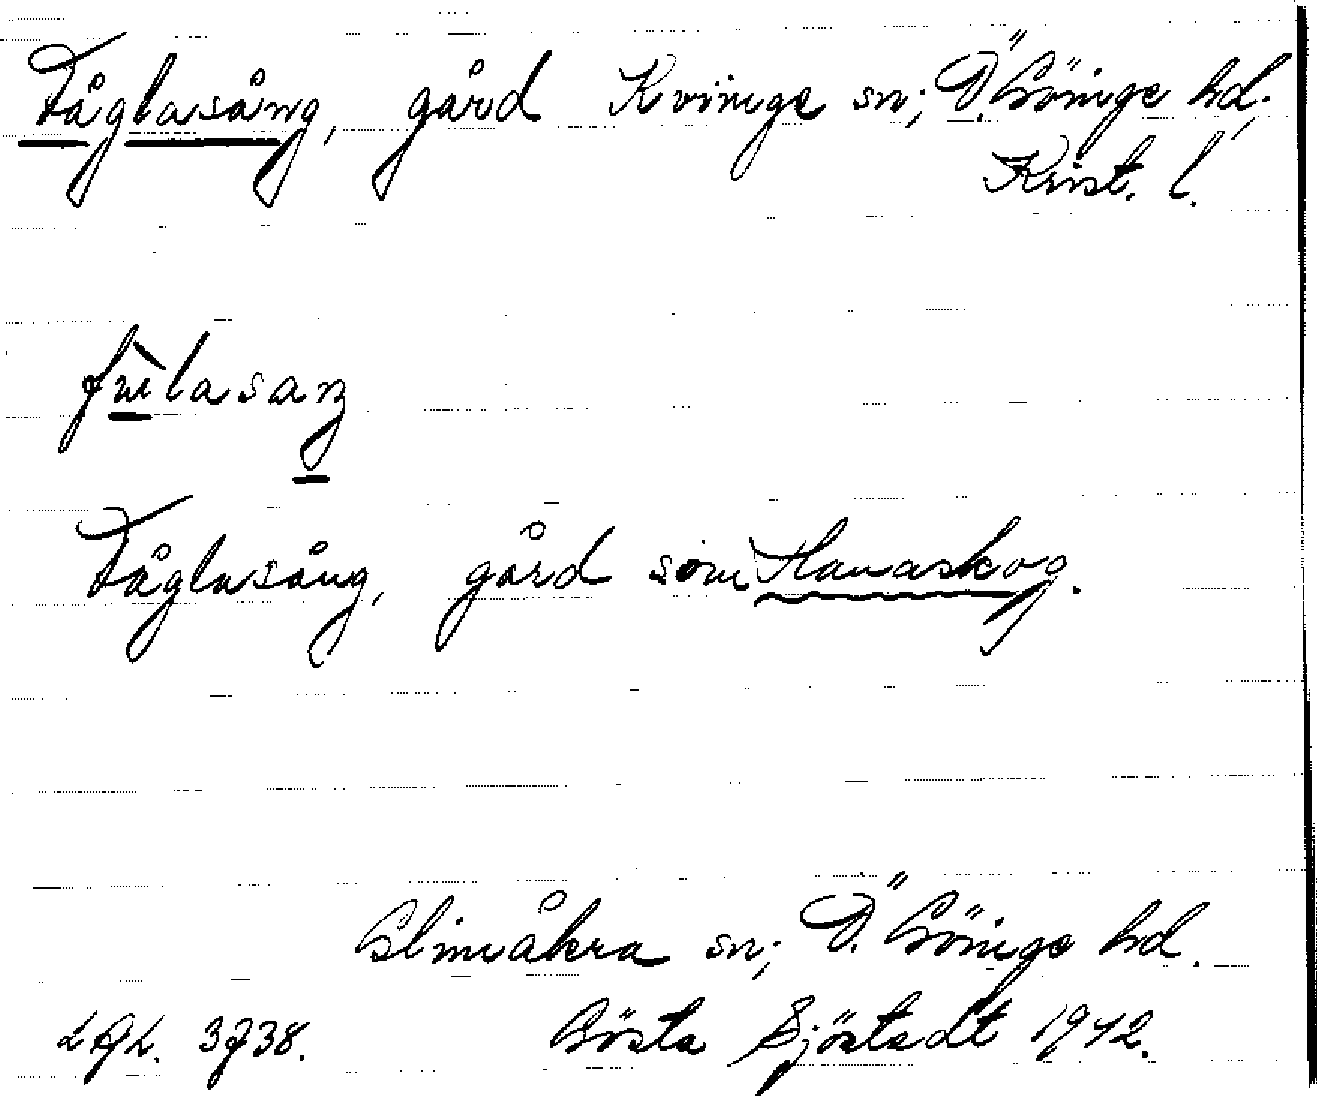 Fåglasång, gård Kviinge sn; Ö. Göinge hd.
Krist. l.
Fåglasång, gård som Hanaskog.
Glimåkra sn; Ö. Göinge hd.
LAL. 3738. Gösta Sjöstedt 1942.